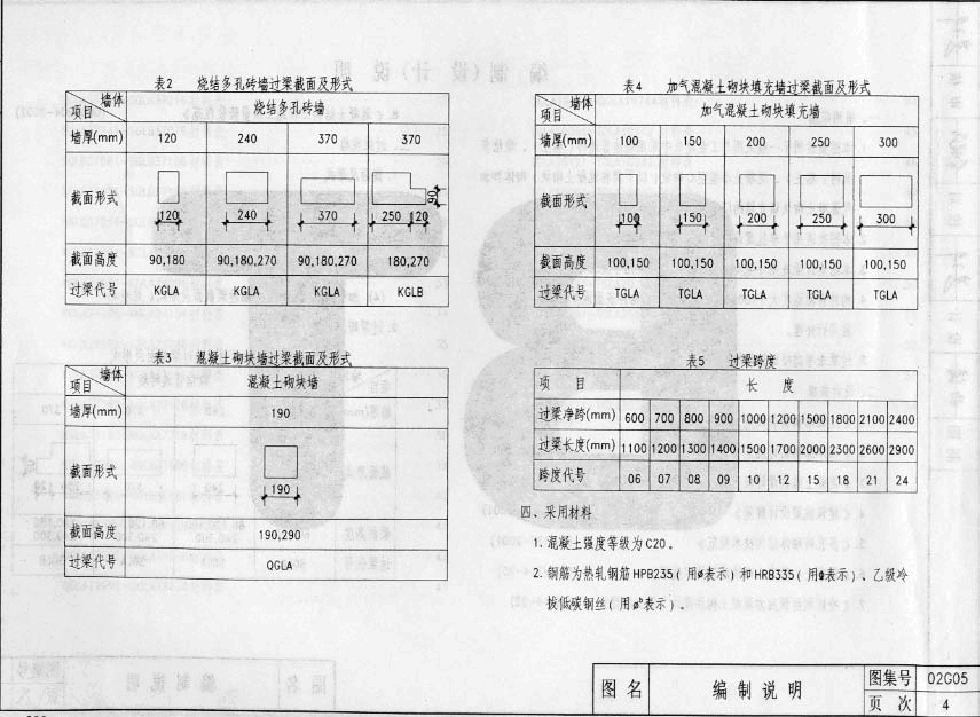 表2 烧结多孔砖墙过梁截面及形式
墙体
项目
烧结多孔砖墙
墙厚(mm) 120 240 370 370
截面形式
120 240 370 250 120 90
截面高度 90,180 90,180,270 90,180,270 180,270
过梁代号 KGLA KGLA KGLA KGLB
表3 混凝土砌块墙过梁截面及形式
墙体
项目
混凝土砌块墙
墙厚(mm) 190
截面形式
190
截面高度 190,290
过梁代号 QGLA
表4 加气混凝土砌块填充墙过梁截面及形式
墙体
项目
加气混凝土砌块填充墙
墙厚(mm) 100 150 200 250 300
截面形式
100 150 200 250 300
截面高度 100,150 100,150 100,150 100,150 100,150
过梁代号 TGLA TGLA TGLA TGLA TGLA
表5 过梁跨度
项 目 长 度
过梁净跨(mm) 600 700 800 900 1000 1200 1500 1800 2100 2400
过梁长度(mm) 1100 1200 1300 1400 1500 1700 2000 2300 2600 2900
跨度代号 06 07 08 09 10 12 15 18 21 24
四、采用材料
1.混凝土强度等级为C20。
2.钢筋为热轧钢筋HPB235(用φ表示)和HRB335(用Φ表示)、乙级冷
拔低碳钢丝(用φᵇ表示).
图 名 编 制 说 明 图集号 02G05
页 次 4